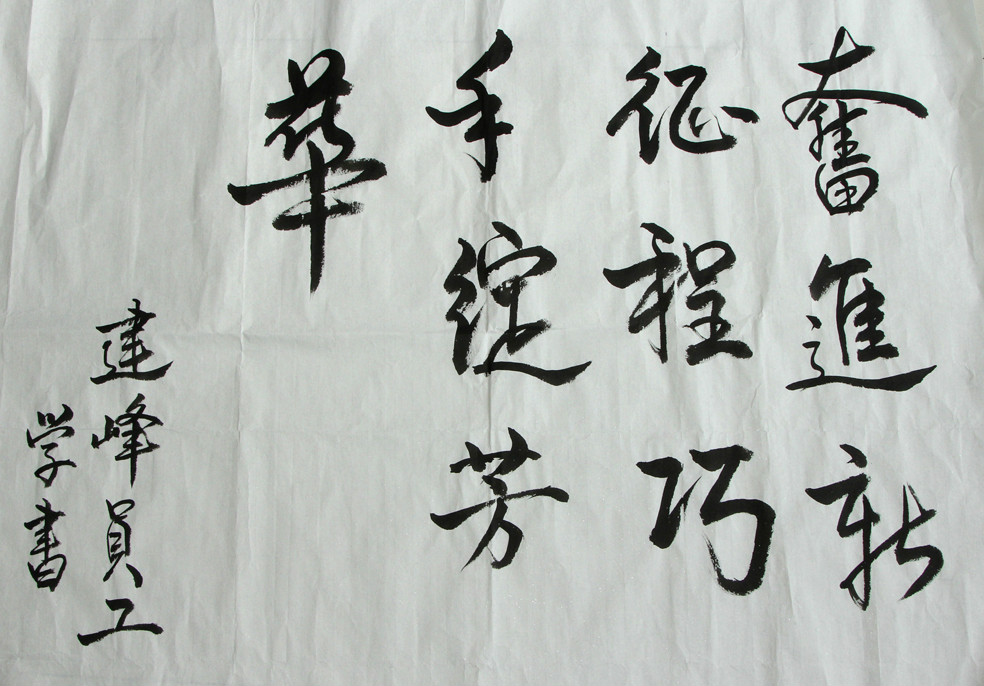 奮進新
征程巧
手绽芳
華
建峰員工
学書